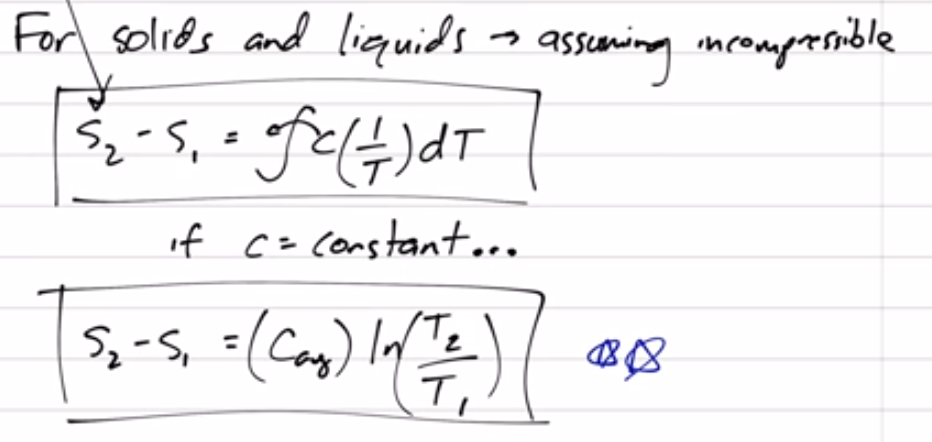 For solids and liquids → assuming incompressible
S₂ - S₁ = ∫c(1/T)dT
if c = constant...
S₂ - S₁ = (Cavg) ln(T₂/T₁)